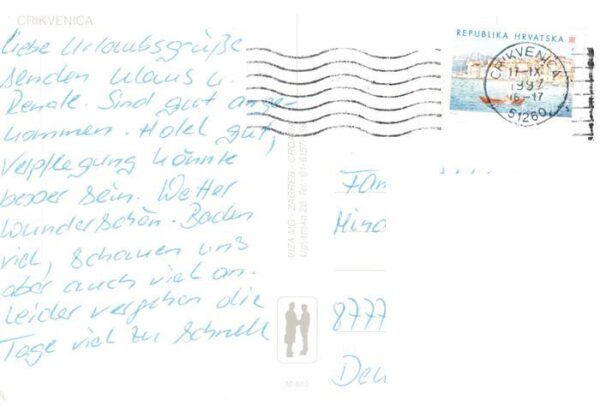 CRIKVENICA
Liebe Urlaubsgrüße
senden Klaus u.
Renate. Sind gut ange-
kommen. Hotel gut,
Verpflegung könnte
besser sein. Wetter
wunderschön. Baden
viel, schauen uns
aber auch viel an.
Leider vergehen die
Tage viel zu schnell
VIZA MG - ZAGREB - CROATIA
REPUBLIKA HRVATSKA
CRIKVENICA
17-IX
16-17
51260
Fam
8777
Deu